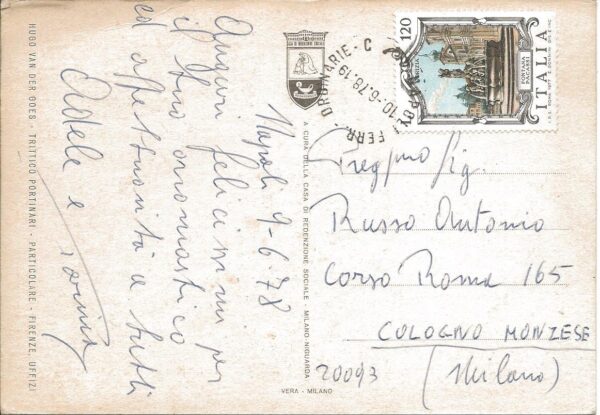 Auguri felicissimi per
il tuo onomastico
ed affettuosità a tutti
Adele e
Napoli 9-6-78
HUGO VAN DER GOES - TRITTICO PORTINARI - PARTICOLARE - FIRENZE, UFFIZI
A CURA DELLA CASA DI REDENZIONE SOCIALE - MILANO-NIGUARDA
VERA - MILANO
FERR. ORDINARIE - C
10-6-78.19
120
ITALIA
FONTANA
PACASSI
GORIZIA
Preg/mo Sig.
Russo Antonio
Corso Roma 165
COLOGNO MONZESE
20093 (Milano)